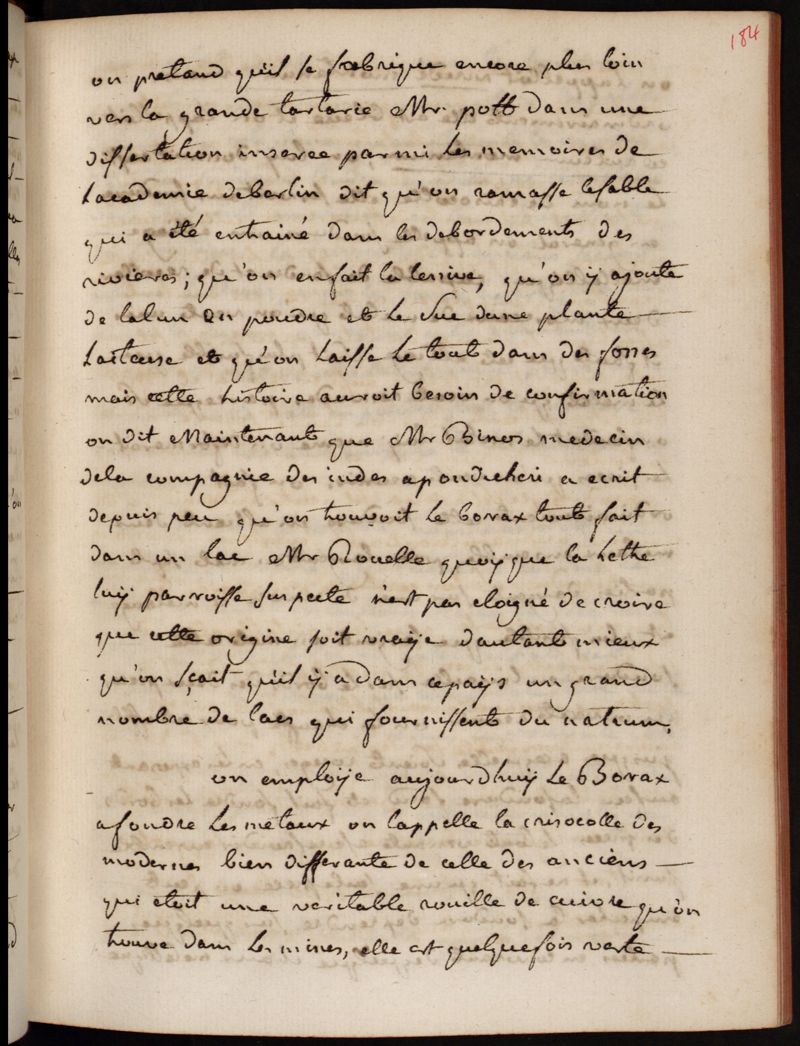 184
on pretand qu'il se fabrique encore plus loin
vers la grande tartarie Mr. pott dans une
dissertation inseree parmi les memoires de
Lacademie deberlin dit qu'on ramasse lesable
qui a été entrainé dans les debordements des
rivieres; qu'on enfait la lessive, qu'on ÿ ajoute
de lalun en poudre et le suc dune plante
Laiteuse et qu'on Laisse Le tout dans des fosses
mais cette histoire auroit besoin de confirmation
on dit Maintenant que Mr Bines medecin
dela compagnie des indes apondicheri a ecrit
depuis peu qu'on trouvoit Le borax tout fait
dans un lac Mr Rouelle quoÿque la Lettre
luÿ parroisse suspecte n'est pas eloigné de croire
que cette origine soit vraÿe dautant mieux
qu'on sçait qu'il ÿ a dans cepaÿs un grand
nombre de lacs qui fournissent du natrum,
on emploÿe aujourdhuÿ Le Borax
afondre Les metaux on lappelle la crisocolle des
modernes bien differante de celle des anciens
qui etoit une veritable rouille de cuivre qu'on
trouve dans Les mines, elle est quelquefois verte